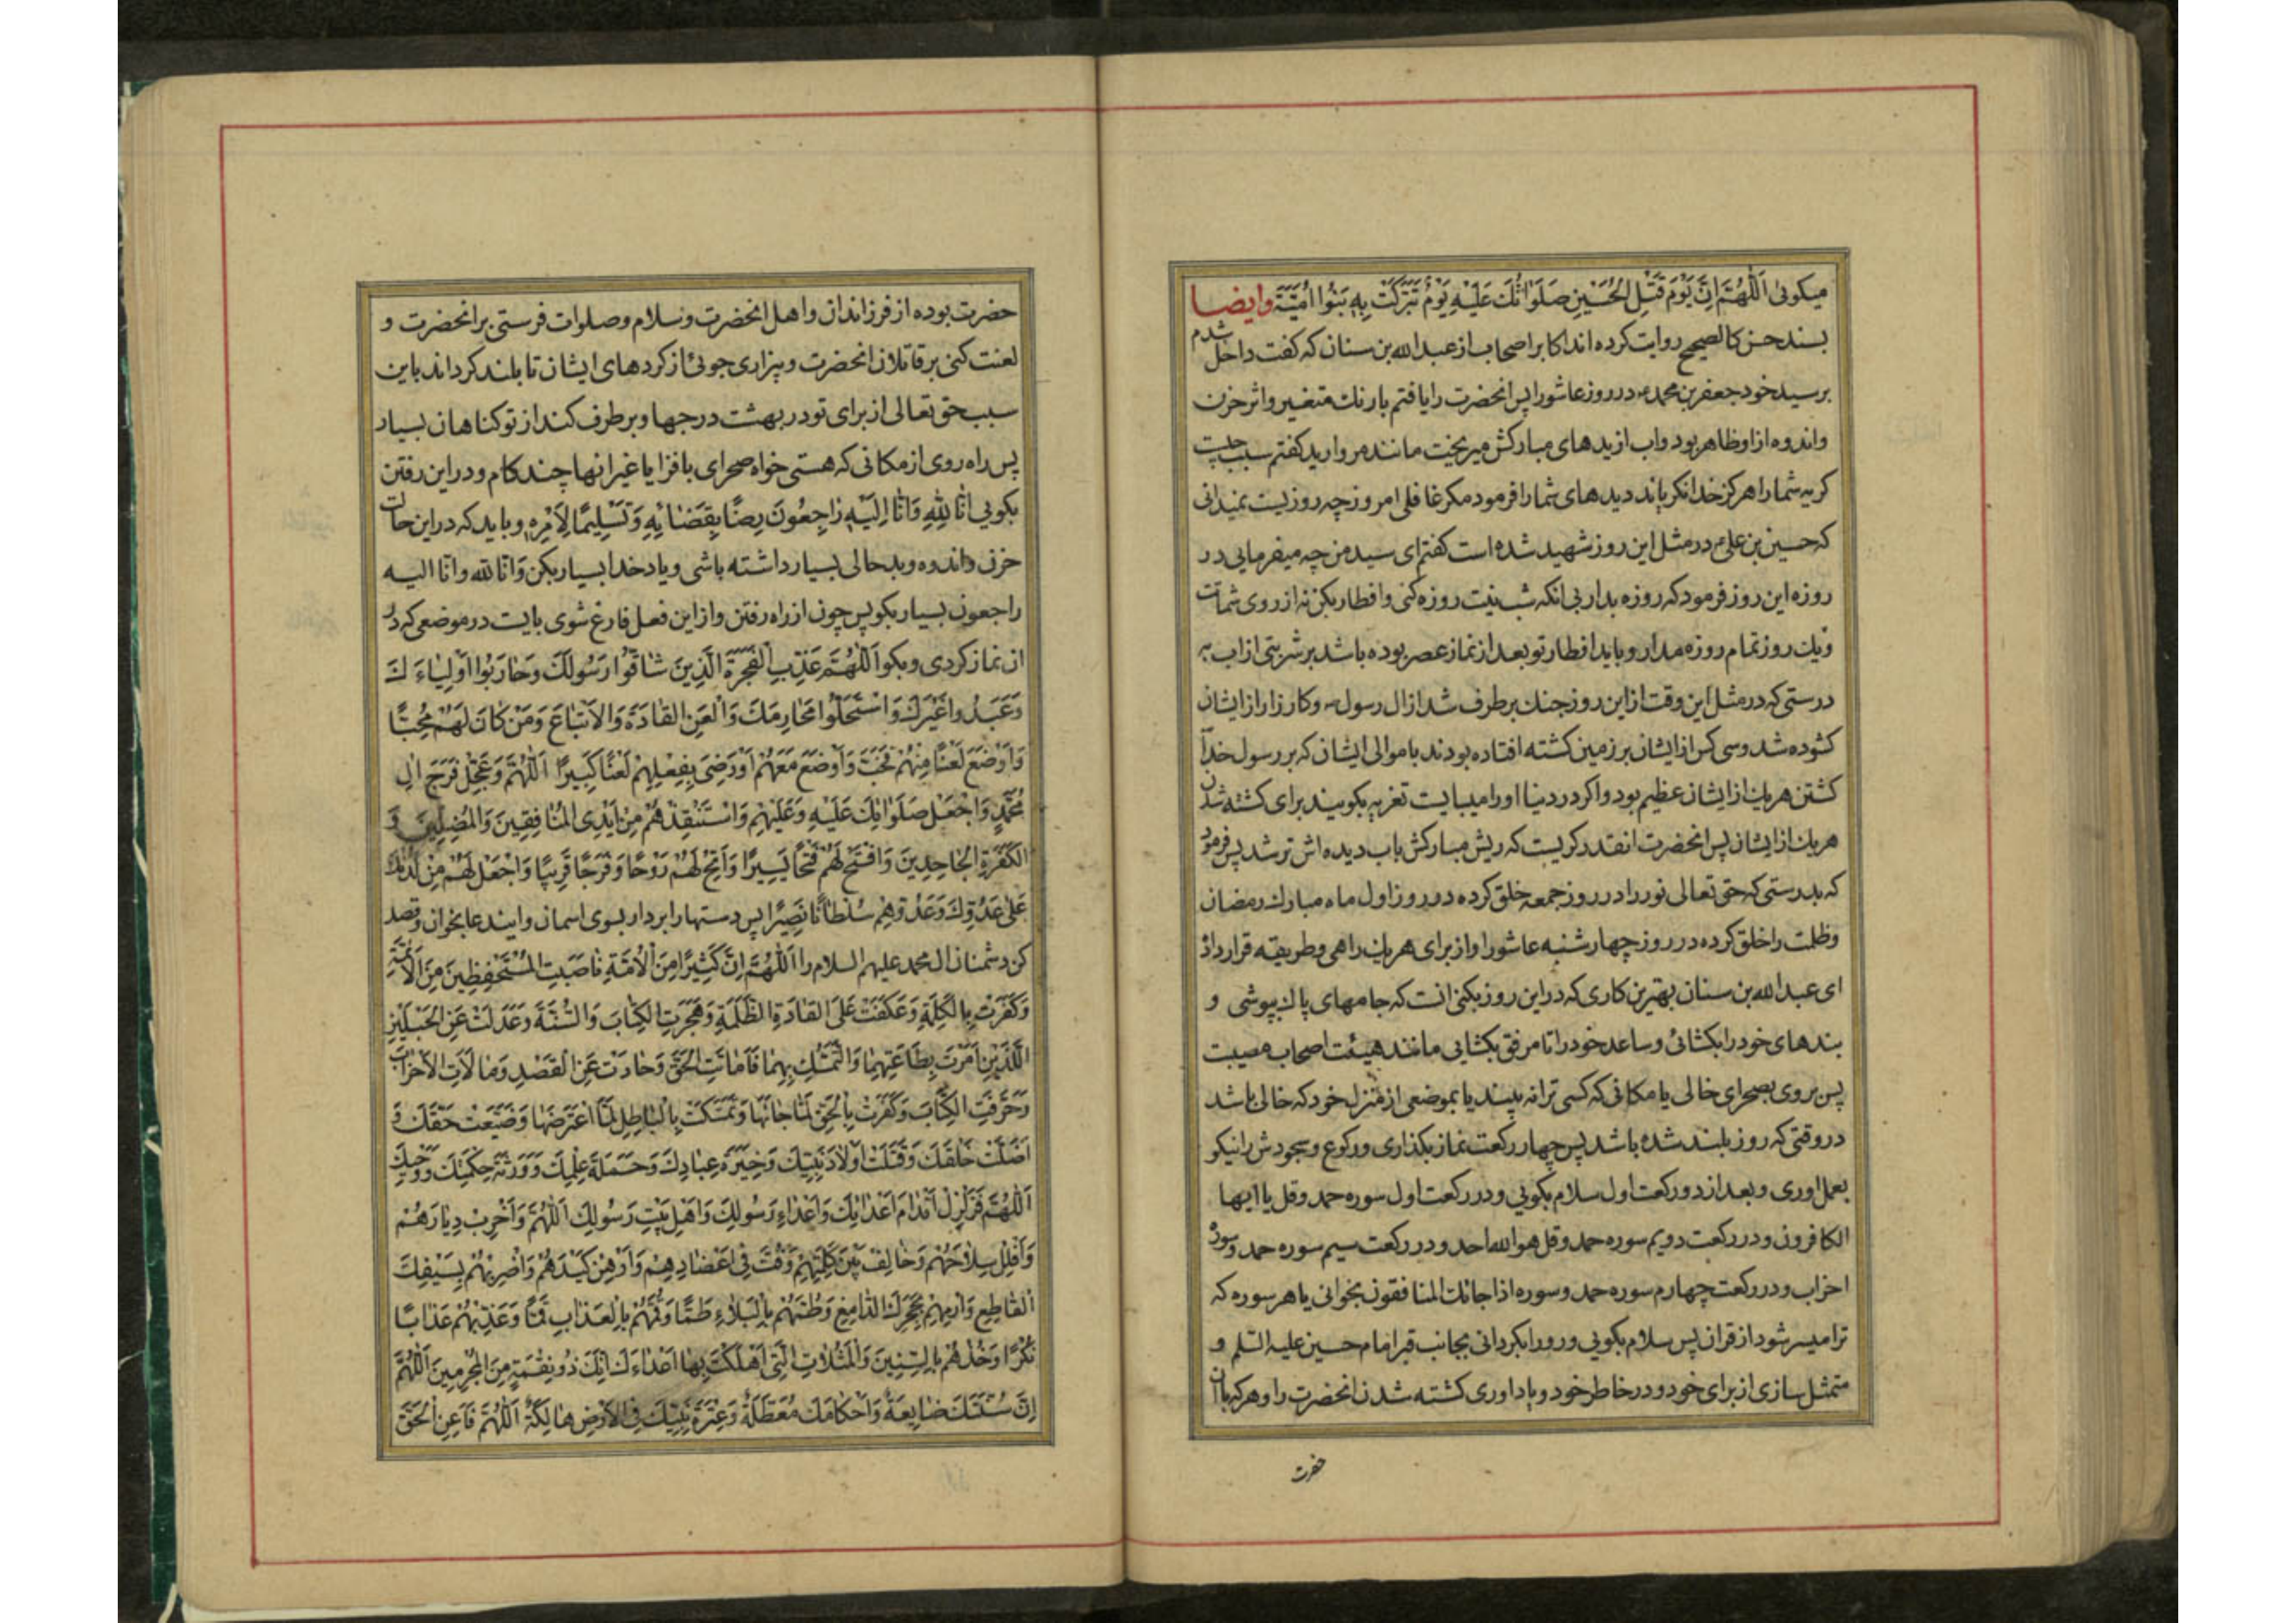 میکوئی اَللّٰهُمَّ اِنَّ یَوْمَ قَتْلِ الحُسَیْنِ صَلَوٰاتُكَ عَلَیْهِ یَوْمٌ تَبَرَّكَتْ بِهِ بَنُوا اُمَیَّةَ وایضا
بسند حسن کالصحیح روایت کرده اند اکابر اصحاب از عبدالله بن سنان که کفت داخل شدم
بر سید خود جعفر بن محمد ع در روز عاشورا پس انحضرت را یافتم بارنك متغیر و اثر حزن
و اندوه از او ظاهر بود و اب از یدهای مبارکش میریخت مانند مروارید کفتم سبب چیست
کریه شما را هرکز خدا نکریاند دیدهای شما را فرمود مکر غافلی امروز چه روزیست نمیدانی
که حسین بن علی ع در مثل این روز شهید شده است کفتم ای سید من چه میفرمایی در
روزه این روز فرمود که روزه بدار بی انکه شب نیت روزه کنی و افطار بکن نه از روی شماتت
و یك روز تمام روزه مدار و باید افطار تو بعد از نماز عصر بوده باشد بر شربتی از اب به
درستی که در مثل این وقت از این روز جنك بر طرف شد از ال رسول ص و کارزار از ایشان
کشوده شد و سی کس از ایشان بر زمین کشته افتاده بودند با موالی ایشان که بر رسول خدا
کشتن هریك از ایشان عظیم بود و اکر در دنیا او را میبایست تعزیه بکویند برای کشته شدن
هریك از ایشان پس انحضرت انقدر کریست که ریش مبارکش باب دیده اش تر شد پس فرمود
که بدرستی که حق تعالی نور را در روز جمعه خلق کرده در روز اول ماه مبارك رمضان
وظلت را خلق کرده در روز چهارشنبه عاشورا و از برای هریك راهی و طریقه قرار داد
ای عبدالله بن سنان بهترین کاری که در این روز بکنی انت که جامهای پاك بپوشی و
بندهای خود را بکشائی و ساعد خود را تا مرفق بکشایی مانند هیئت اصحاب مصیبت
پس بروی بصحرای خالی یا مکانی که کسی ترا نه بیند یا بموضعی از منزل خود که خالی باشد
در وقتی که روز بلند شده باشد پس چهار رکعت نماز بکذاری و رکوع و سجودش را نیکو
بعمل اوری و بعد از دو رکعت اول سلام بکویی و در رکعت اول سوره حمد و قل یا ایها
الکافرون و در رکعت دویم سوره حمد و قل هو الله احد و در رکعت سیم سوره حمد و سورهٔ
احزاب و در رکعت چهارم سوره حمد و سوره اذا جائك المنافقون بخوانی یا هر سوره که
ترا میسر شود از قران پس سلام بکویی و رو را بکردانی بجانب قبر امام حسین علیه السلم و
متمثل سازی از برای خود و در خاطر خود و بیاد اوری کشته شدن انحضرت را و هرکه با ان
حضرت
حضرت بوده از فرزاندان و اهل انحضرت و سلام و صلوات فرستی بر انحضرت و
لعنت کنی بر قاتلان انحضرت و بیزاری جوئی از کردهای ایشان تا بلند کرداند باین
سبب حق تعالی از برای تو در بهشت درجها و بر طرف کند از تو کناهان بسیار
پس راه روی از مکانی که هستی خواه صحرای بافزا یا غیر انها چند کام و در این رفتن
بکویی اِنّٰا لِلّٰهِ وَاِنّٰا اِلَیْهِ رٰاجِعُونَ رِضًا بِقَضٰائِهِ وَتَسْلِیمًا لِاَمْرِهِ و باید که در این حالت
حزن و اندوه و بدحالی بسیار داشته باشی و یاد خدا بسیار بکن وانا لله وانا الیه
راجعون بسیار بکو پس چون از راه رفتن و از این فعل فارغ شوی بایست در موضعی که در
ان نماز کردی و بکو اَللّٰهُمَّ عَذِّبِ الفَجَرَةَ الَّذِینَ شٰاقُّوا رَسُولَكَ وَحٰارَبُوا اَوْلِیٰاءَكَ
وَعَبَدُوا غَیْرَكَ وَاسْتَحَلُّوا مَحٰارِمَكَ وَالْعَنِ القٰادَةَ وَالاَتْبٰاعَ وَمَنْ كٰانَ لَهُمْ مُحِبًّا
وَاَوْضَعَ لَعْنًا مِنْهُمْ فَخَبَّ وَاَوْضَعَ مَعَهُمْ اَوْ رَضِیَ بِفِعْلِهِمْ لَعْنًا كَبِیرًا اَللّٰهُمَّ وَعَجِّلْ فَرَجَ اٰلِ
مُحَمَّدٍ وَاجْعَلْ صَلَوٰاتِكَ عَلَیْهِ وَعَلَیْهِمْ وَاسْتَنْقِذْهُمْ مِنْ اَیْدِی المُنٰافِقِینَ وَالمُضِلِّینَ وَ
الكَفَرَةِ الجٰاحِدِینَ وَافْتَحْ لَهُمْ فَتْحًا یَسِیرًا وَاَتِحْ لَهُمْ رَوْحًا وَفَرَجًا قَرِیبًا وَاجْعَلْ لَهُمْ مِنْ لَدُنْكَ
عَلیٰ عَدُوِّكَ وَعَدُوِّهِمْ سُلْطٰانًا نَصِیرًا پس دستها را بردار بسوی اسمان و ایندعا بخوان و قصد
کن دشمنان ال محمد علیهم السلام را اَللّٰهُمَّ اِنَّ كَثِیرًا مِنَ الاُمَّةِ نٰاصَبَتِ المُسْتَحْفِظِینَ مِنَ الاَئِمَّةِ
وَكَفَرَتْ بِالْكَلِمَةِ وَعَكَفَتْ عَلَی القٰادَةِ الظَّلَمَةِ وَهَجَرَتِ الكِتٰابَ وَالسُّنَّةَ وَعَدَلَتْ عَنِ الحَبْلَیْنِ
اللَّذَیْنِ اَمَرْتَ بِطٰاعَتِهِمٰا وَالتَّمَسُّكِ بِهِمٰا فَاَمٰاتَتِ الحَقَّ وَحٰادَتْ عَنِ القَصْدِ وَمٰالَاَتِ الاَحْزٰابَ
وَحَرَّفَتِ الكِتٰابَ وَكَفَرَتْ بِالْحَقِّ لَمّٰا جٰائَهٰا وَتَمَسَّكَتْ بِالبٰاطِلِ لَمّٰا اعْتَرَضَهٰا وَضَیَّعَتْ حَقَّكَ وَ
اَضَلَّتْ خَلْقَكَ وَقَتَلَتْ اَوْلٰادَ نَبِیِّكَ وَخِیَرَةَ عِبٰادِكَ وَحَمَلَةَ عِلْمِكَ وَوَرَثَةَ حِكْمَتِكَ وَوَحْیِكَ
اَللّٰهُمَّ فَزَلْزِلْ اَقْدٰامَ اَعْدٰائِكَ وَاَعْدٰاءِ رَسُولِكَ وَاَهْلِ بَیْتِ رَسُولِكَ اَللّٰهُمَّ وَاَخْرِبْ دِیٰارَهُمْ
وَافْلُلْ سِلٰاحَهُمْ وَخٰالِفْ بَیْنَ كَلِمَتِهِمْ وَفُتَّ فِی اَعْضٰادِهِمْ وَاَوْهِنْ كَیْدَهُمْ وَاضْرِبْهُمْ بِسَیْفِكَ
القٰاطِعِ وَارْمِهِمْ بِحَجَرِكَ الدّٰامِغِ وَطُمَّهُمْ بِالْبَلٰاءِ طَمًّا وَقُمَّهُمْ بِالْعَذٰابِ قَمًّا وَعَذِّبْهُمْ عَذٰابًا
نُكْرًا وَخُذْهُمْ بِالسِّنِینَ وَالْمَثُلٰاتِ الَّتِی اَهْلَكْتَ بِهٰا اَعْدٰاءَكَ اِنَّكَ ذُو نِقْمَةٍ مِنَ المُجْرِمِینَ اَللّٰهُمَّ
اِنَّ سُنَّتَكَ ضٰایِعَةٌ وَاَحْكٰامَكَ مُعَطَّلَةٌ وَعِتْرَةَ نَبِیِّكَ فِی الاَرْضِ هٰالِكَةٌ اَللّٰهُمَّ فَاَعِنِ الْحَقَّ